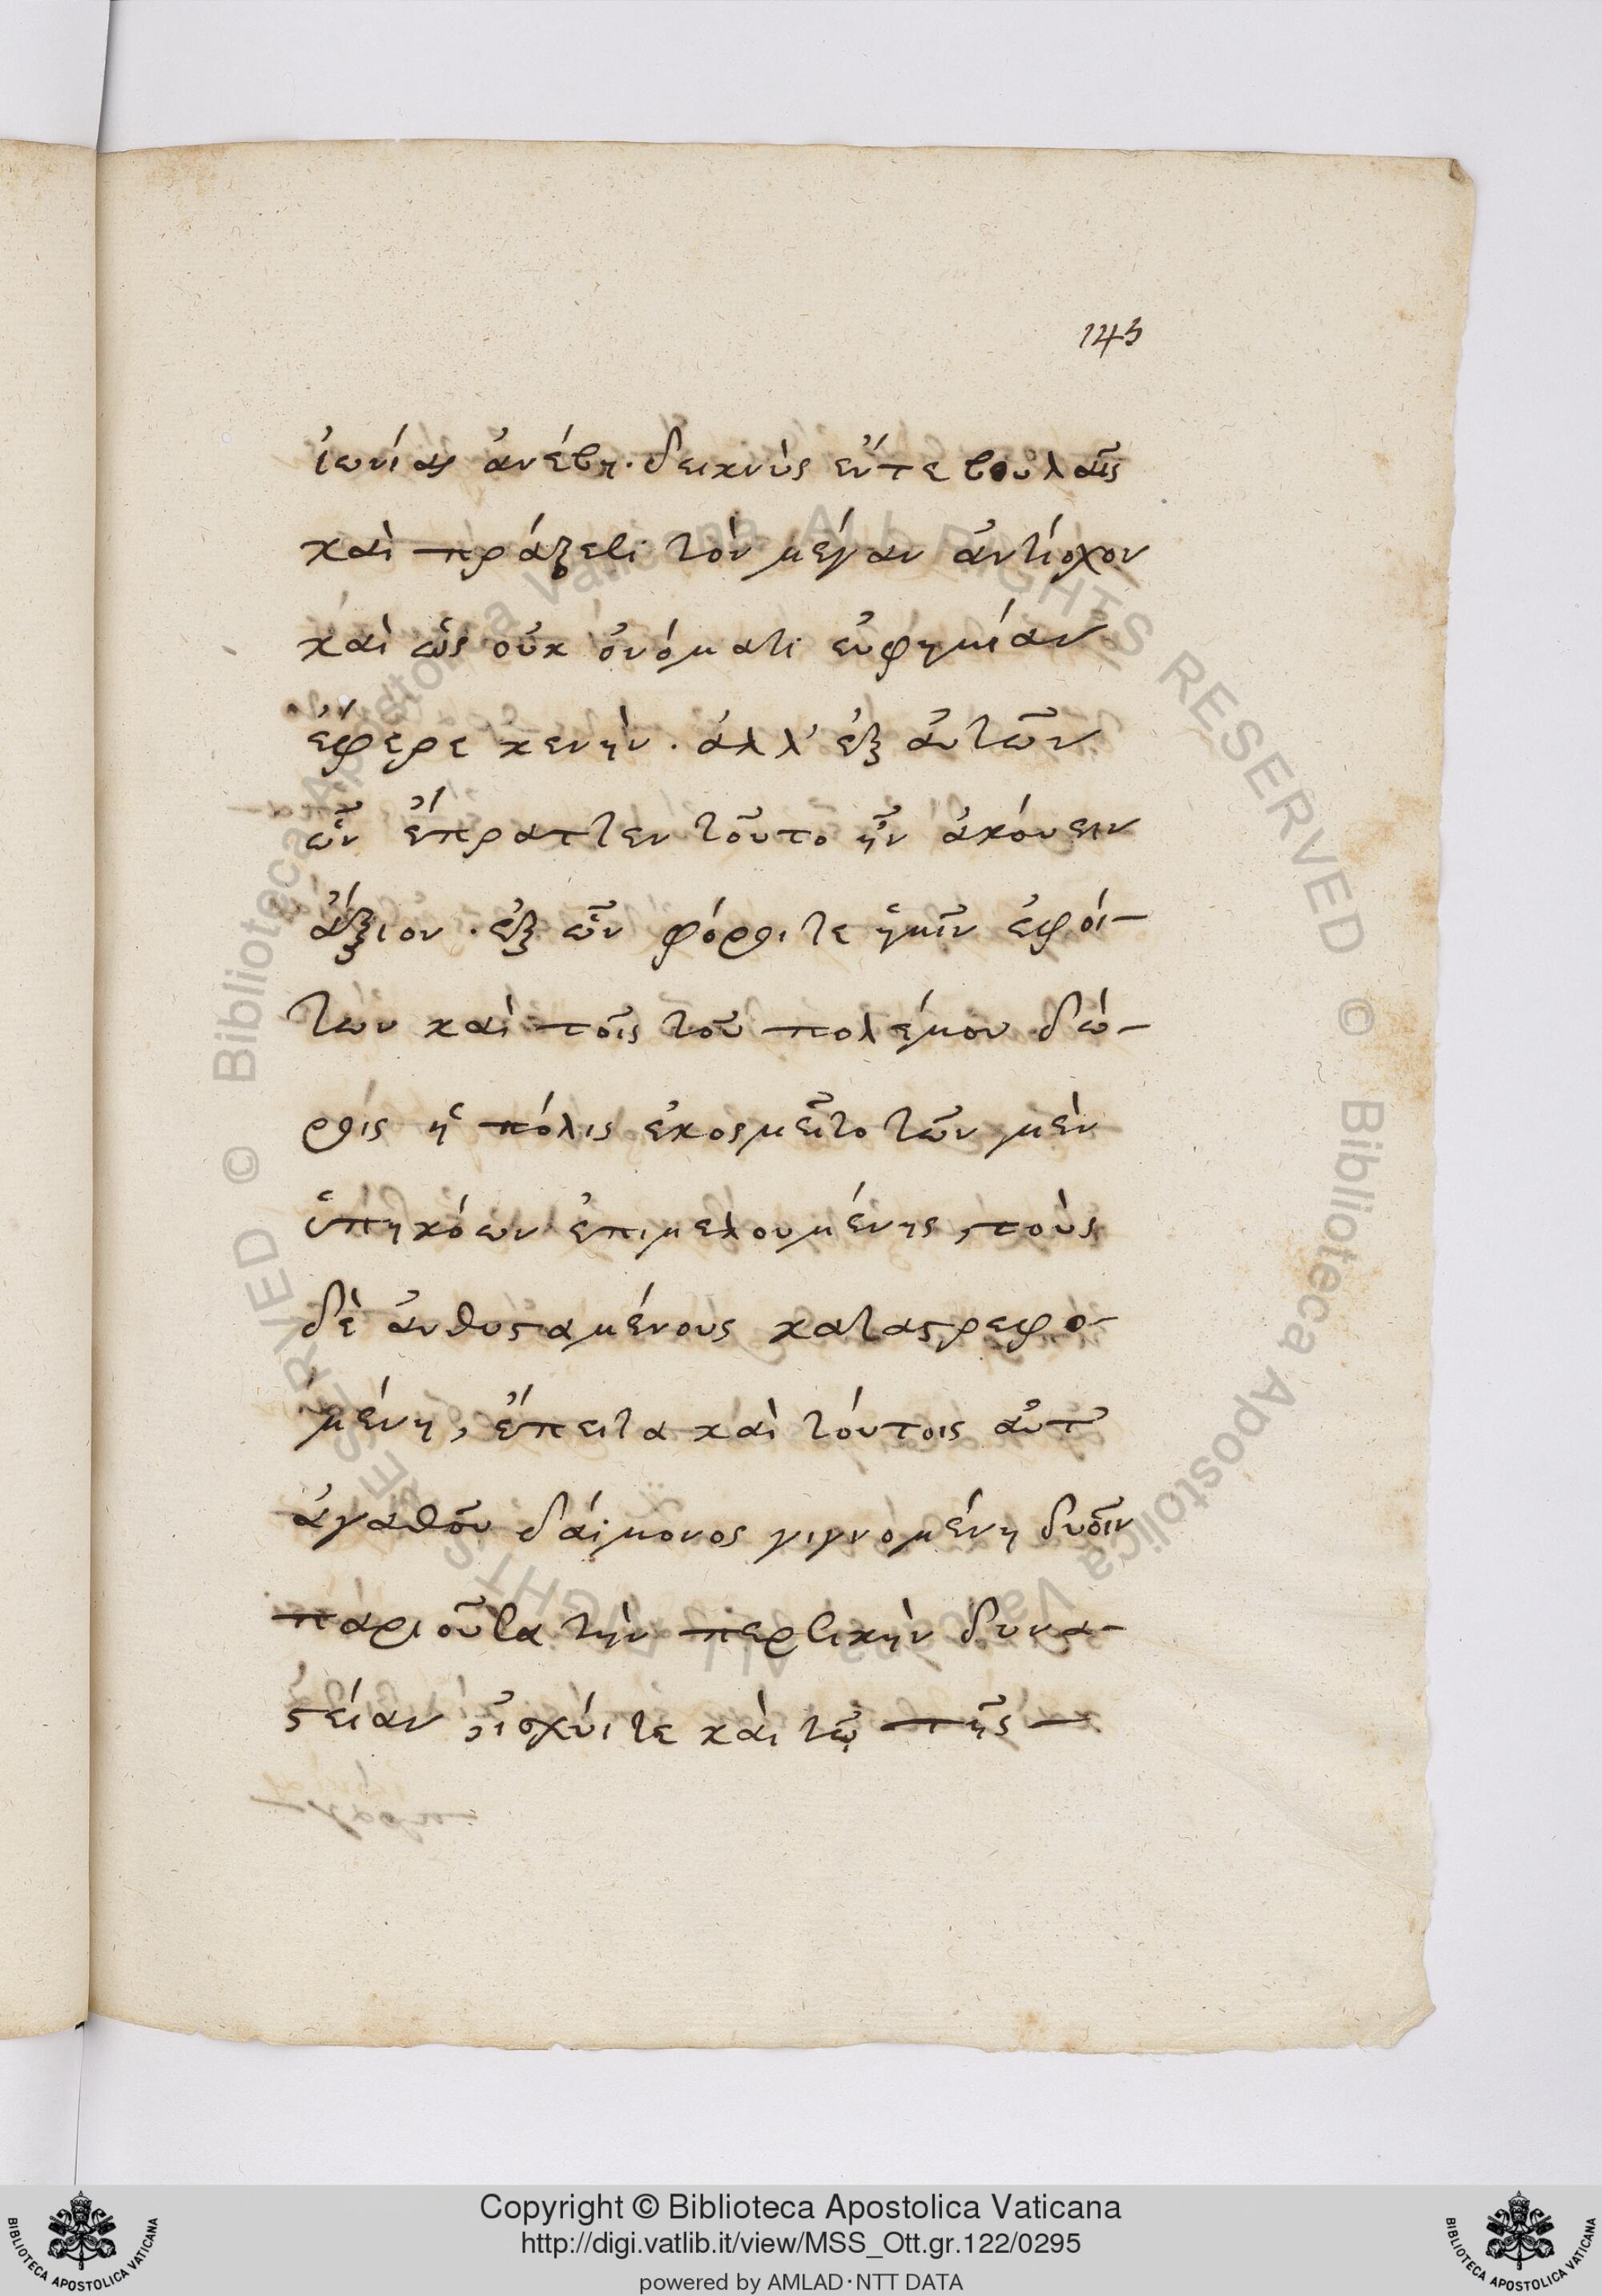 143
ἰωνίας ἀνέβη· δεικνὺς εὔτε βουλαῖς
καὶ πράξεσι τὸν μέγαν ἀντίοχον
καὶ ὡς οὐκ ὀνόματι εὐφημίαν
ἔφερε κενὴν. ἀλλ' ἐξ αὐτῶν
ὧν ἔπραττεν τοῦτο ἦν ἀκόυειν
ἄξιον. ἐξ ὧν φόροι τε ἡμῖν ἐφοί-
των καὶ τοῖς τοῦ πολέμου δώ-
ροις ἡ πόλις ἐκοσμεῖτο τῶν μὲν
ὑπηκόων ἐπιμελουμένης, τοὺς
δὲ καταστρεφο-
μένη, ἔπειτα καὶ τόυτοις αὖτ
ἀγαθοῦ δάιμονος γιγνομένη δυοῖν
παριοῦσα τὴν περσικὴν δυνα-
στείαν, ἰσχύι τε κὰι τῷ τῆς
Copyright © Biblioteca Apostolica Vaticana
http://digi.vatlib.it/view/MSS_Ott.gr.122/0295
powered by AMLAD·NTT DATA
BIBLIOTECA APOSTOLICA VATICANA
BIBLIOTECA APOSTOLICA VATICANA
© Biblioteca Apostolica Vaticana ALL RIGHTS RESERVED © Biblioteca Apostolica Vaticana ALL RIGHTS RESERVED